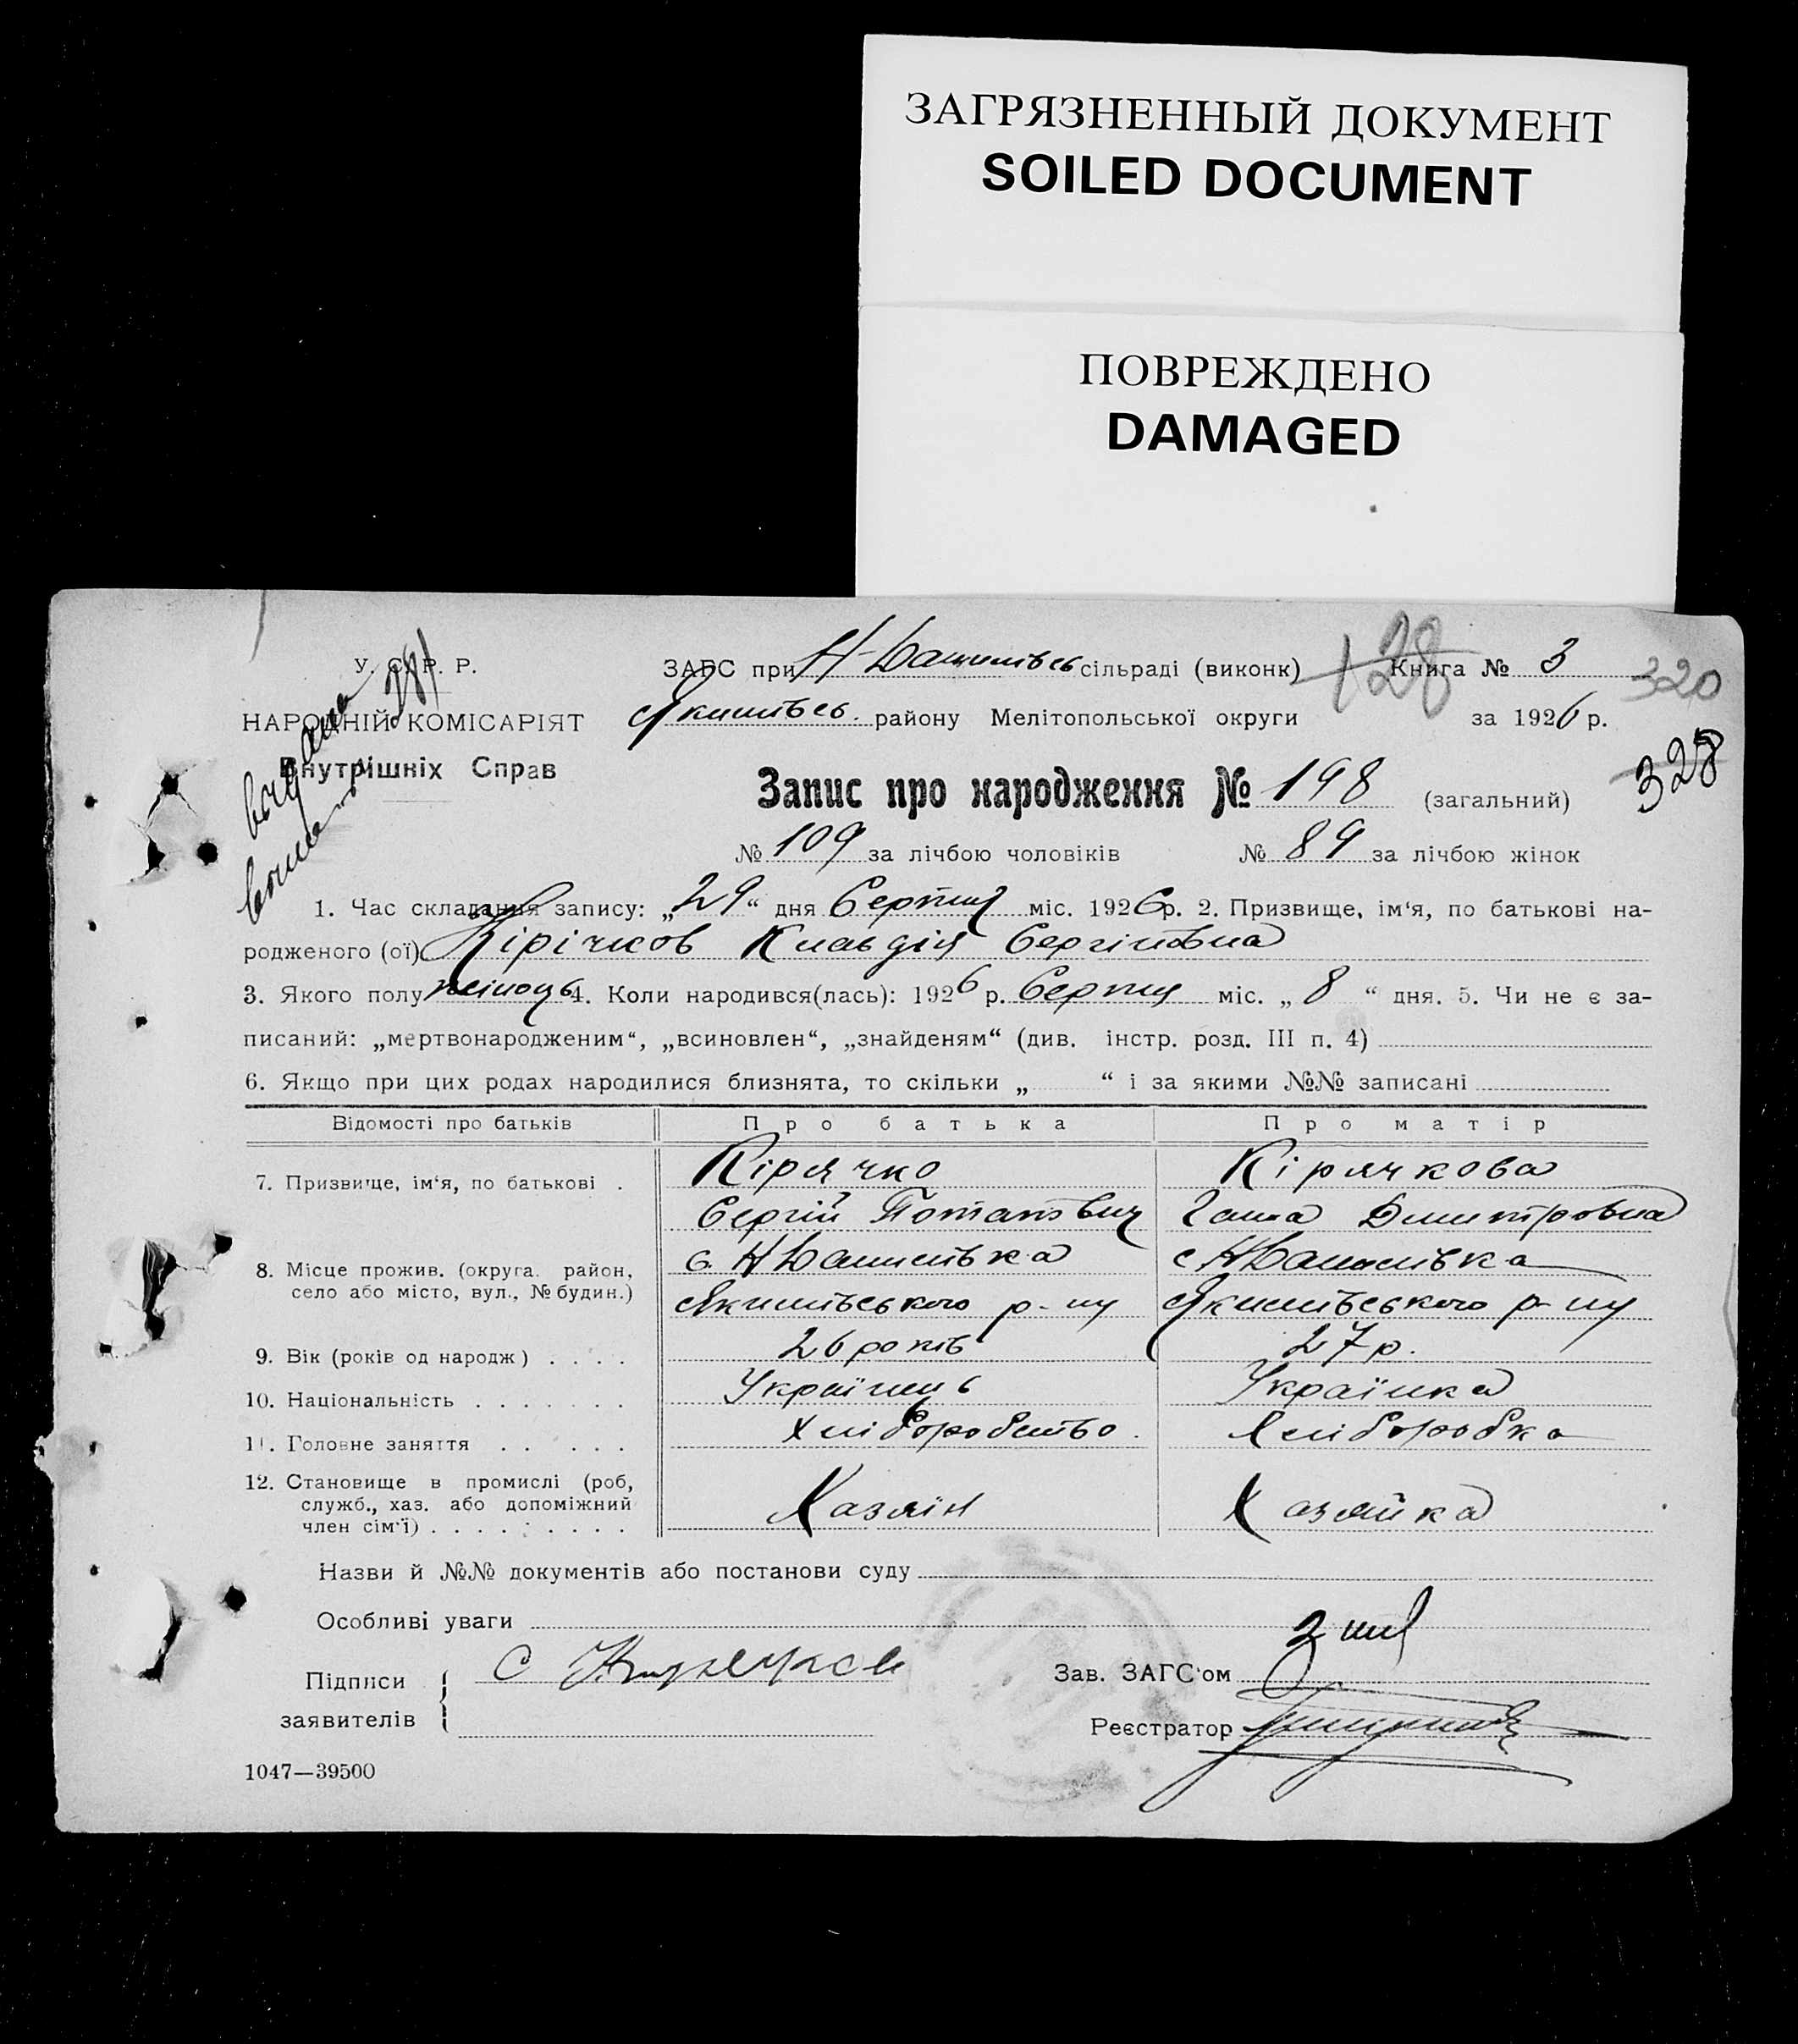 ЗАГРЯЗНЕННЫЙ ДОКУМЕНТ
SOILED DOCUMENT
ПОВРЕЖДЕНО
DAMAGED
У. С. Р. Р.
НАРОДНІЙ КОМІСАРІЯТ
Внутрішніх Справ
ЗАГС при Н-Данилівсь сільраді (виконк) 128 Книга № 3 320
Якимівсь. району Мелітопольської округи за 1926 р.
328
Запис про народження № 198 (загальний)
№ 109 за лічбою чоловіків № 89 за лічбою жінок
1. Час складання запису: „29“ дня Серпня міс. 1926р. 2. Призвище, ім‘я, по батькові на-
родженого (ої) Кірічков Клавдія Сергіївна
3. Якого полу жіноць 4. Коли народився(лась): 1926 р. Серпня міс. „ 8 “ дня. 5. Чи не є за-
писаний: „мертвонародженим“, „всиновлен“, „знайденям“ (див. інстр. розд. III п. 4)
6. Якщо при цих родах народилися близнята, то скільки „ “ і за якими №№ записані
Відомості про батьків Про батька Про матір
7. Призвище, ім‘я, по батькові . Кірячко Кірячкова
Сергій Потапович Ганна Дмитровна
8. Місце прожив. (округа. район, с. Н Данилівка с Н Данилівка
село або місто, вул., № будин.) Якимівського р-ну Якимівського р-ну
9. Вік (років од народж) . . . . 26 років 27 р.
10. Національність . . . . . . . Українець Українка
11. Головне заняття . . . . . Хліборобство. Хліборобка
12. Становище в промислі (роб, служб., хаз. або допоміжний член сім‘ї) . . . . . . . . . Хазяїн Хазяйка
Назви й №№ документів або постанови суду
Особливі уваги
Підписи
заявителів
С
Зав. ЗАГС‘ом
Реєстратор
1047—39500